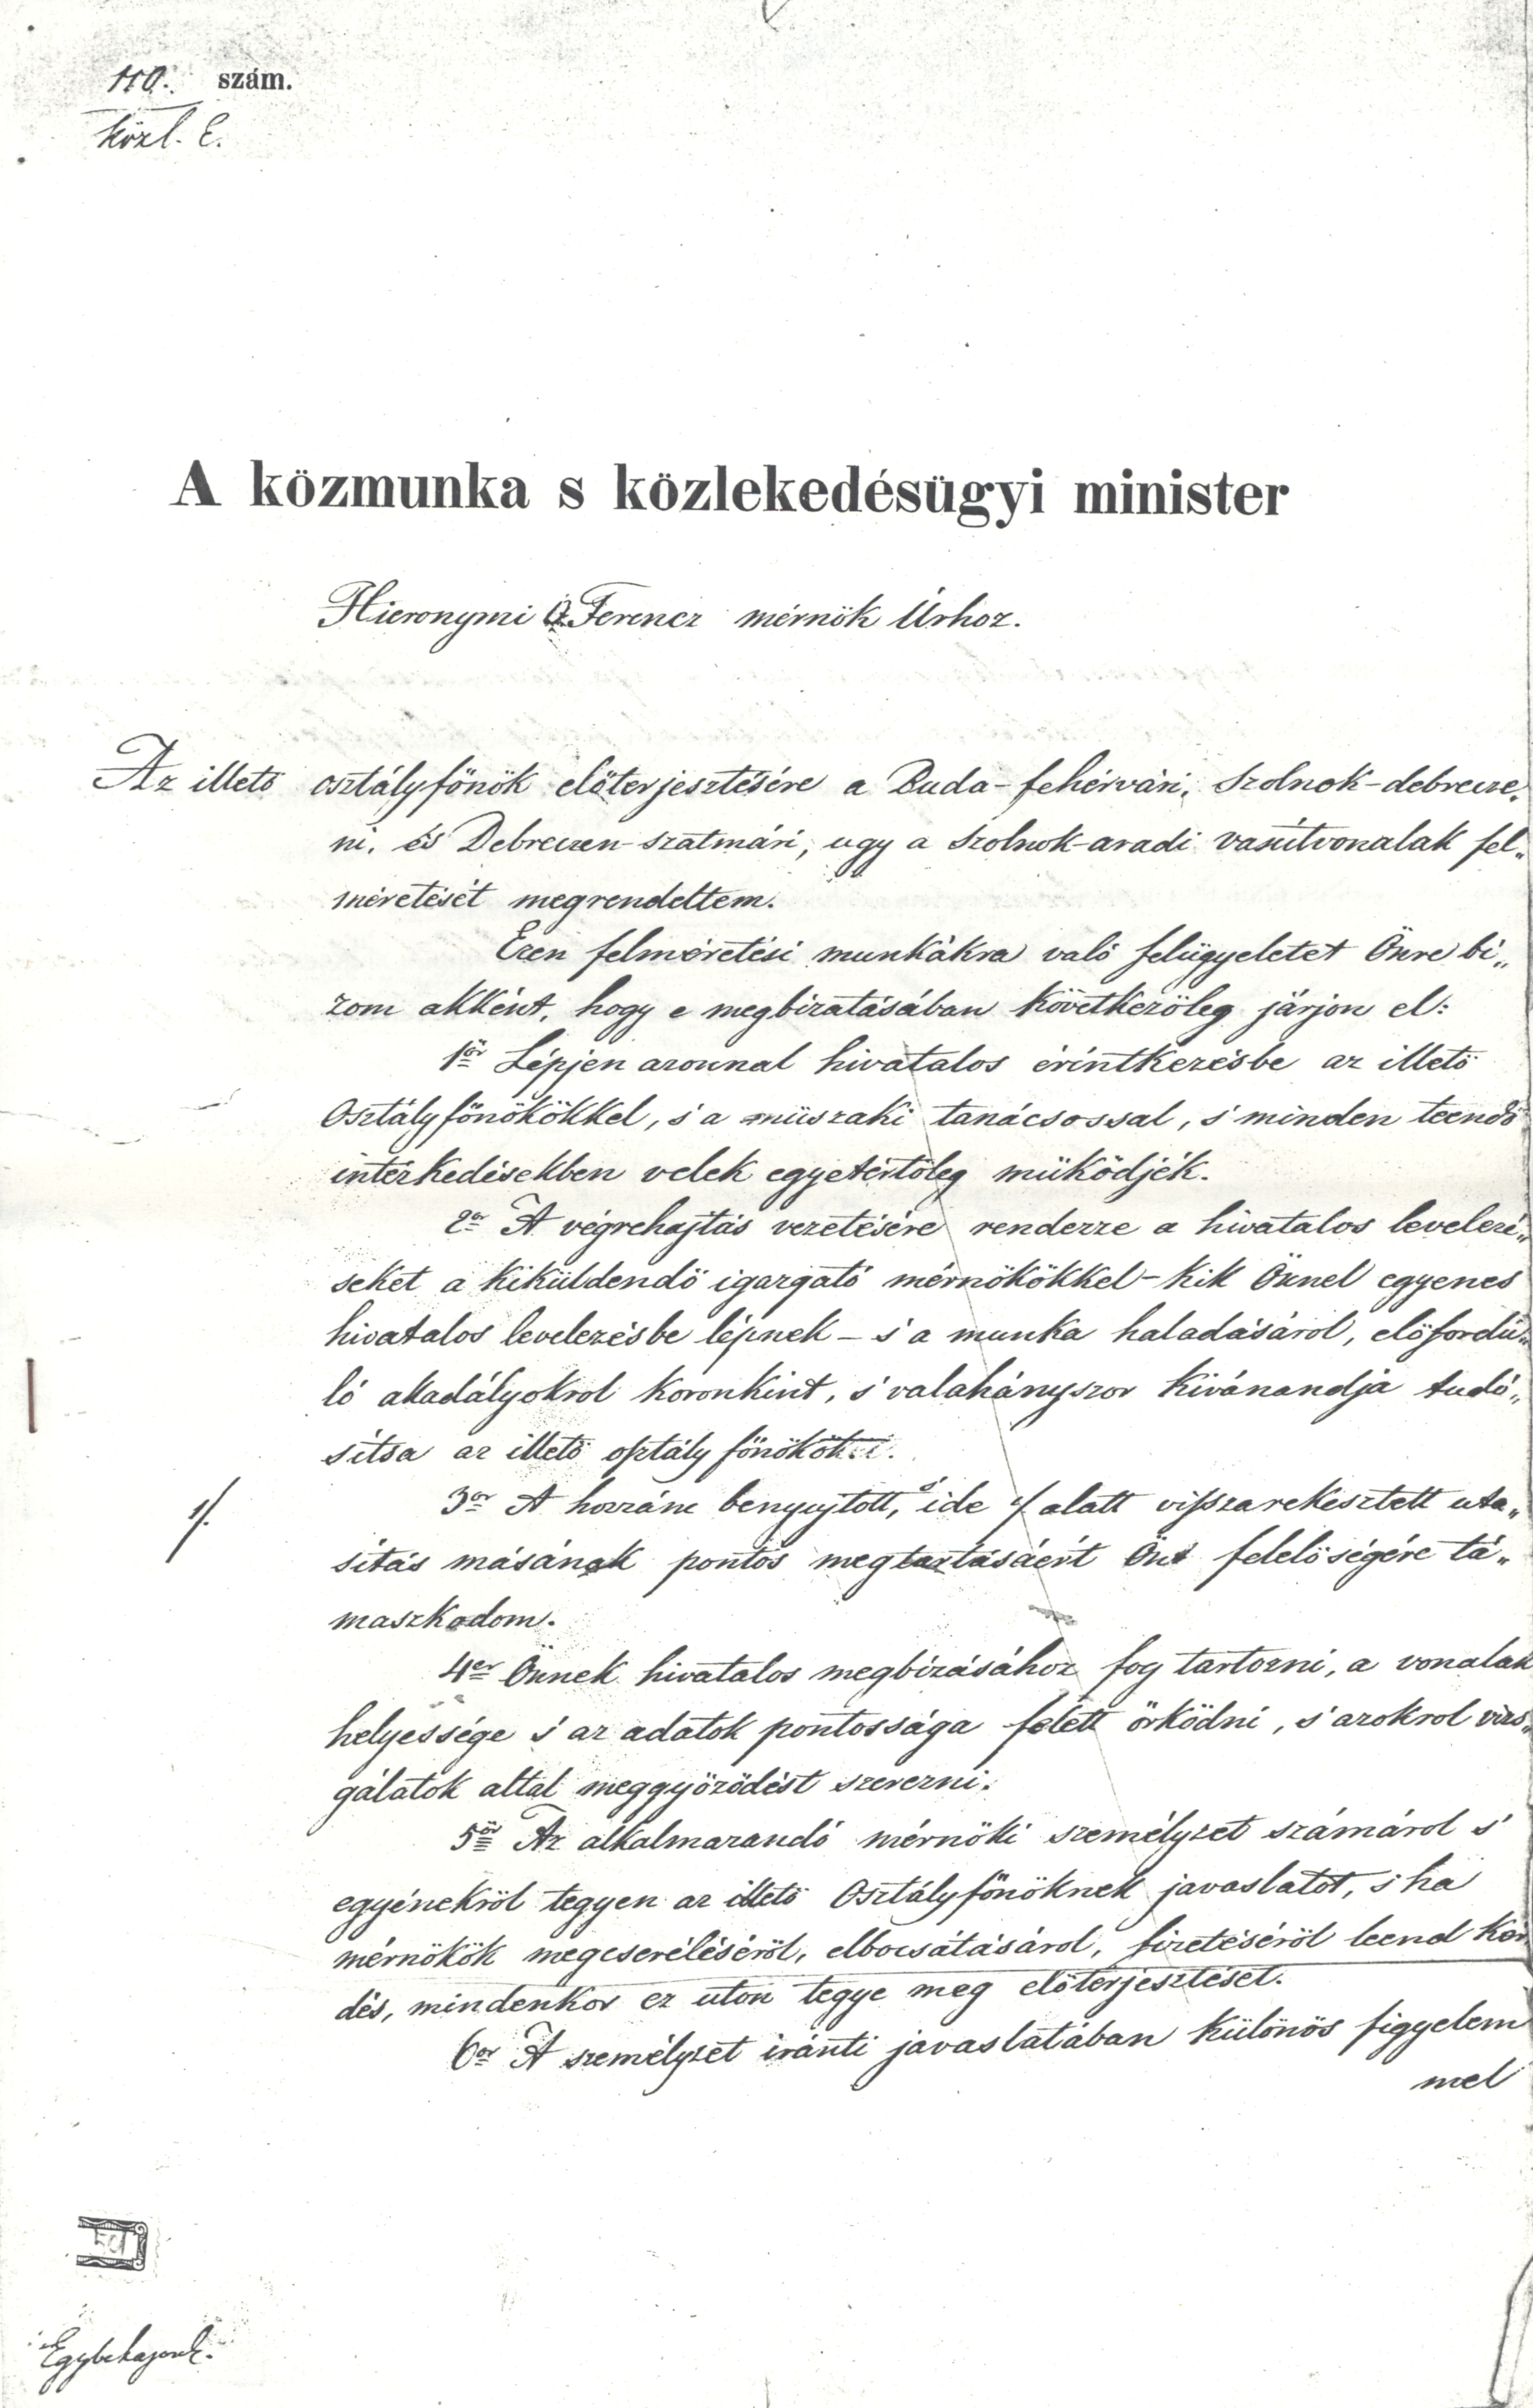 110. szám.
közl. E.
A közmunka s közlekedésügyi minister
Hieronymi O. Ferencz mérnök Úrhoz.
Az illető osztályfőnök előterjesztésére a Buda-fehérvári, Szolnok-debrecze„
ni, és Debreczen-szatmári, ugy a Szolnok-aradi vasútvonalak fel„
méretését megrendeltem.
Ezen felméretési munkákra való felügyeletet Önre bi„
zom akként, hogy e megbizatásában következőleg járjon el:
1ör Lépjen azonnal hivatalos érintkezésbe az illető
Osztályfőnökökkel, s a műszaki tanácsossal, s minden teendő
intézkedésekben velek egyetértőleg működjék.
2or A végrehajtás vezetésére rendezze a hivatalos levelezé„
seket a kiküldendő igazgató mérnökökkel – kik Önnel egyenes
hivatalos levelezésbe lépnek – s a munka haladásárol, előfordu„
ló akadályokrol koronkint, s valahányszor kivánandja tudó„
sitsa az illető osztály főnököket.
1/.
3or A hozzám benyujtott, s ide 1/ alatt visszarekesztett uta„
sitás másának pontos megtartásáért Önt felelőségére tá„
maszkodom.
4er Önnek hivatalos megbizásához fog tartozni, a vonalak
helyessége s az adatok pontossága felett őrködni, s azokrol vizs„
gálatok altal meggyőződést szerezni.
5ör Az alkalmazandó mérnöki személyzet számárol s
egyénekről tegyen az illető Osztályfőnöknek javaslatot, s ha
mérnökök megcseréléséről, elbocsátásárol, fizetéséről leend kér
dés, mindenkor ez uton tegye meg előterjesztését.
6or A személyzet iránti javaslatában különös figyelem
mel